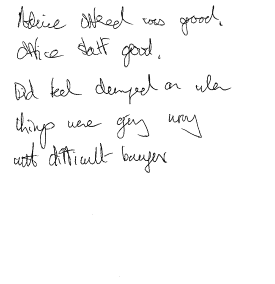 Advice offered was good.
Office staff good.
Did feel damped on when
things were going wrong
with difficult buyers